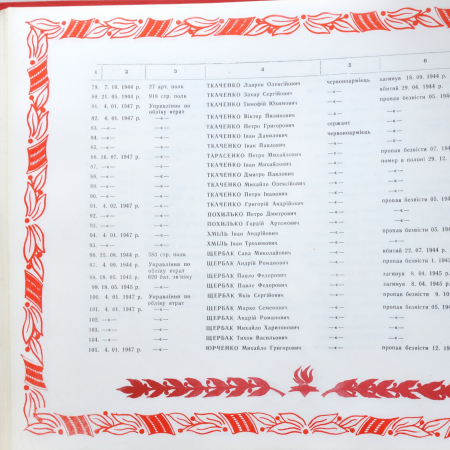 1 2 3 4 5 6
79. 7. 10. 1944 р. 27 арт. полк ТКАЧЕНКО Лаврен Олексійович червоноармієць загинув 18. 09. 1944 р.
80. 21. 05. 1944 р. 916 стр. полк ТКАЧЕНКО Захар Сергійович —«— вбитий 29. 04. 1944 р.
81. 4. 01. 1947 р. Управління по обліку втрат ТКАЧЕНКО Тимофій Юхимович —«— пропав безвісти 05. 194
82. 4. 01. 1947 р. —«— ТКАЧЕНКО Віктор Пилипович —«— —«—
83. —«— —«— ТКАЧЕНКО Петро Григорович сержант —«—
84. —«— —«— ТКАЧЕНКО Іван Данилович червоноармієць —«—
85. —«— —«— ТКАЧЕНКО Іван Павлович —«— —«—
86. 16. 07. 1947 р. —«— ТАРАСЕНКО Петро Михайлович —«— пропав безвісти 07. 1
—«— —«— ТКАЧЕНКО Іван Михайлович —«— помер в полоні 29. 12.
—«— —«— ТКАЧЕНКО Дмитро Павлович —«—
89. —«— —«— ТКАЧЕНКО Михайло Олексійович —«—
90. —«— —«— ТКАЧЕНКО Петро Іванович —«—
91. 4. 02. 1947 р. —«— ТКАЧЕНКО Григорій Андрійович —«— пропав безвісти 05. 1
92. —«— —«— ПОХИЛЬКО Петро Дмитрович —«— —«—
93. —«— —«— ПОХИЛЬКО Гордій Артемович —«— —«—
94. 4. 01. 1947 р. —«— ХМІЛЬ Іван Андрійович —«— пропав безвісти 05. 194
95. —«— —«— ХМІЛЬ Іван Трохимович —«— —«—
96. 25. 09. 1944 р. 585 стр. полк ЩЕРБАК Сава Миколайович —«— вбитий 22. 07. 1944 р.
97. 4. 09. 1944 р. Управління по обліку втрат ЩЕРБАК Андрій Романович —«— пропав безвісти 1. 194
98. 18. 05. 1945 р. 820 бат. зв'язку ЩЕРБАК Павло Федорович —«— загинув 8. 04. 1945 р.
99. 18. 05. 1945 р. ЩЕРБАК Павло Федорович —«— загинув 8. 04. 1945 р.
100. 4. 01. 1947 р. Управління по обліку втрат ЩЕРБАК Яків Сергійович —«— пропав безвісти 9. 10
101. 4. 01. 1947 р. —«— ЩЕРБАК Марко Семенович —«— пропав безвісти 05. 194
102. —«— —«— ЩЕРБАК Андрій Романович —«— —«—
103. —«— —«— ЩЕРБАК Михайло Харитонович —«— —«—
104. —«— —«— ЩЕРБАК Тихон Васильович —«— —«—
105. 4. 01. 1947 р. —«— ЮРЧЕНКО Михайло Григорович —«— пропав безвісти 12. 19